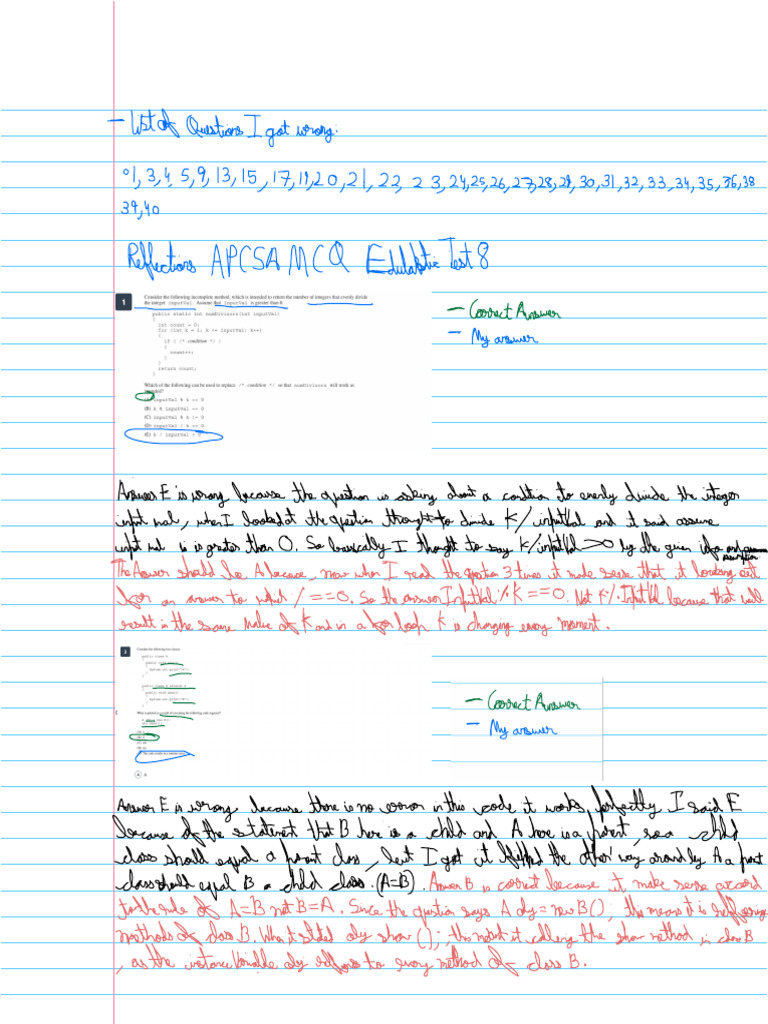 - List of Questions I got wrong:
01, 3, 4, 5, 9, 13, 15, 17, 19, 20, 21, 22, 23, 24, 25, 26, 27, 28, 29, 30, 31, 32, 33, 34, 35, 36, 38
39, 40
Reflections APCSA MCQ Edulastic Test 8
1
Consider the following incomplete method, which is intended to return the number of integers that evenly divide
the integer inputVal. Assume that inputVal is greater than 0.
public static int numDivisors(int inputVal)
{
int count = 0;
for (int k = 1; k <= inputVal; k++)
{
if ( /* condition */ )
{
count++;
}
}
return count;
}
Which of the following can be used to replace /* condition */ so that numDivisors will work as
intended?
(A) inputVal % k == 0
(B) k % inputVal == 0
(C) inputVal % k != 0
(D) inputVal / k == 0
(E) k / inputVal > 0
- Correct Answer
- My answer
Answer E is wrong because the question is asking about a condition to evenly divide the integer
input val, when I looked at the question thought to divide K/inputVal and it said assume
input val is is greater than 0. So basically I thought to say K/inputVal > 0 by the given idea and
The Answer should be A because, now when I read the question 3 times it made sense that it looking out
for an answer to which / == 0. So the answer InputVal % K == 0. Not K % InputVal because that will
result in the same value of K and in a for loop K is changing every moment.
3
Consider the following two classes.
public class A
public void show()
System.out.print("A");
public class B extends A
public void show()
System.out.print("B");
What is printed as a result of executing the following code segment?
A obj = new B();
obj.show();
- Correct Answer
- My answer
Answer E is wrong because there is no error in this code it works perfectly I said E
because of the statement that B here is a child and A here is a parent, so a child
class should equal a parent class, but I got it flipped the other way around by A a parent
class should equal B a child class. (A=B). Answer B is correct because it make sense accord
to the rule of A=B not B=A. Since the question says A obj = new B(); this means it is reffering
methods of class B. When it stated obj show(); this meant it calling the show method in class B
, as the instance Variable obj reffers to every method of class B.